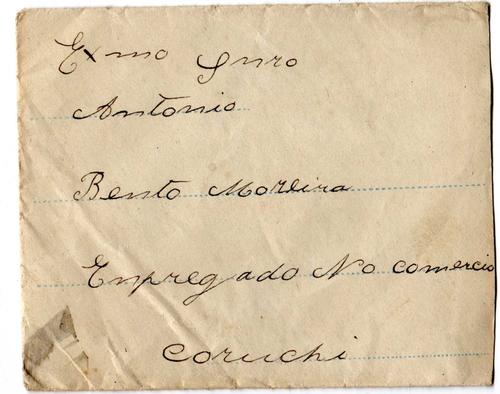 Exmo Snro
Antonio
Bento Moreira
Empregado No comercio
Coruchi